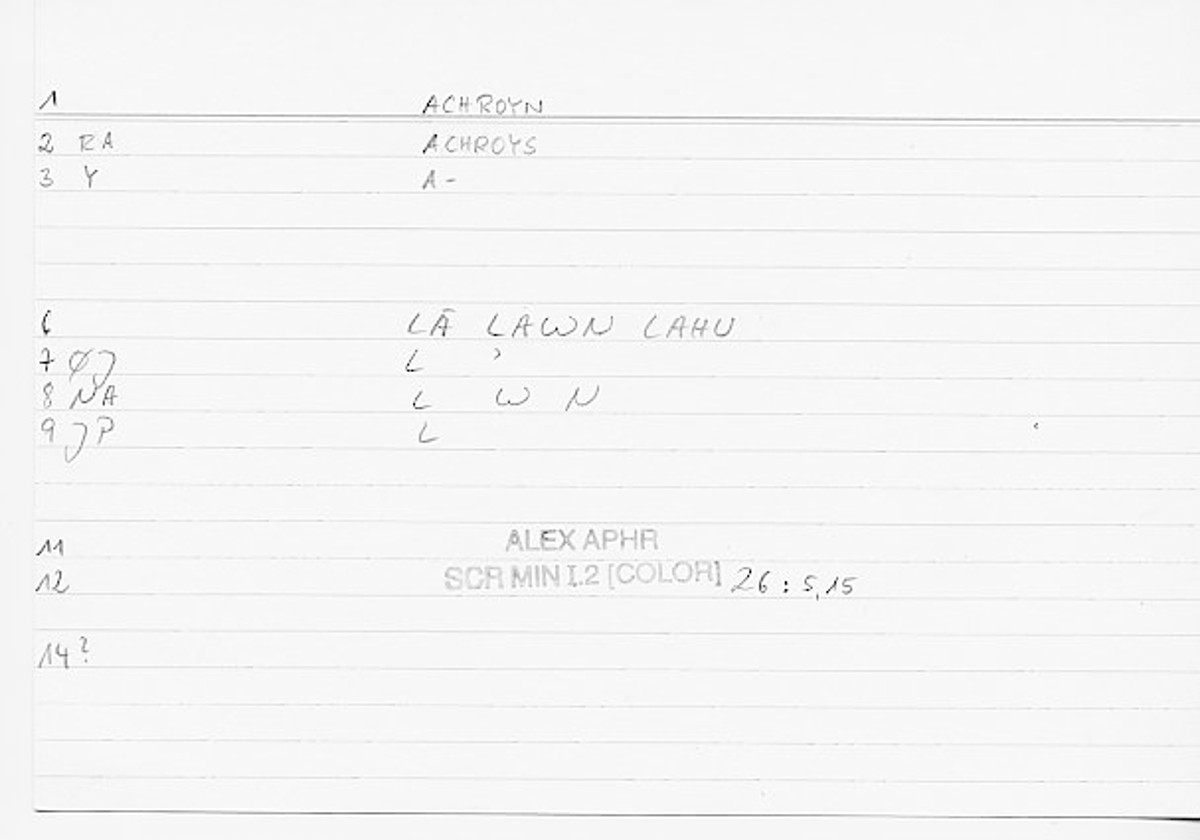 1 ACHROYN
2 RA ACHROYS
3 Y A-
6 LĀ LAWN LAHU
7 ØJ L ʾ
8 NA L W N
9 JP L
11 ALEX APHR
12 SCR MIN I.2 [COLOR] 26 : 5,15
14?